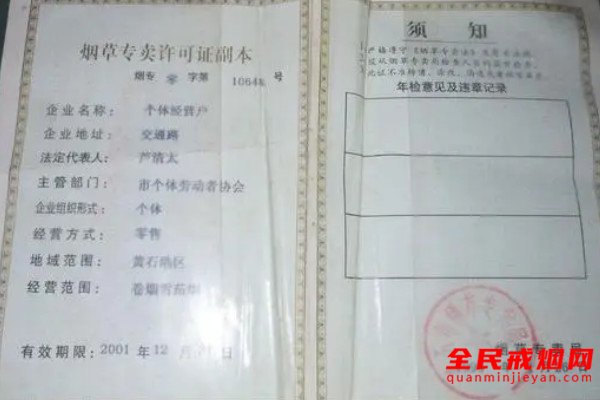 烟草专卖许可证副本
烟专 零 字第 1064 号
企业名称： 个体经营户
企业地址： 交通路
法定代表人： 芦清太
主管部门： 市个体劳动者协会
企业组织形式： 个体
经营方式： 零售
地域范围： 黄石港区
经营范围： 卷烟雪茄烟
有效期限： 2001 年 12 月 日
须知
年检意见及违章记录
烟草专卖局
全民戒烟网
quanminjieyan.com